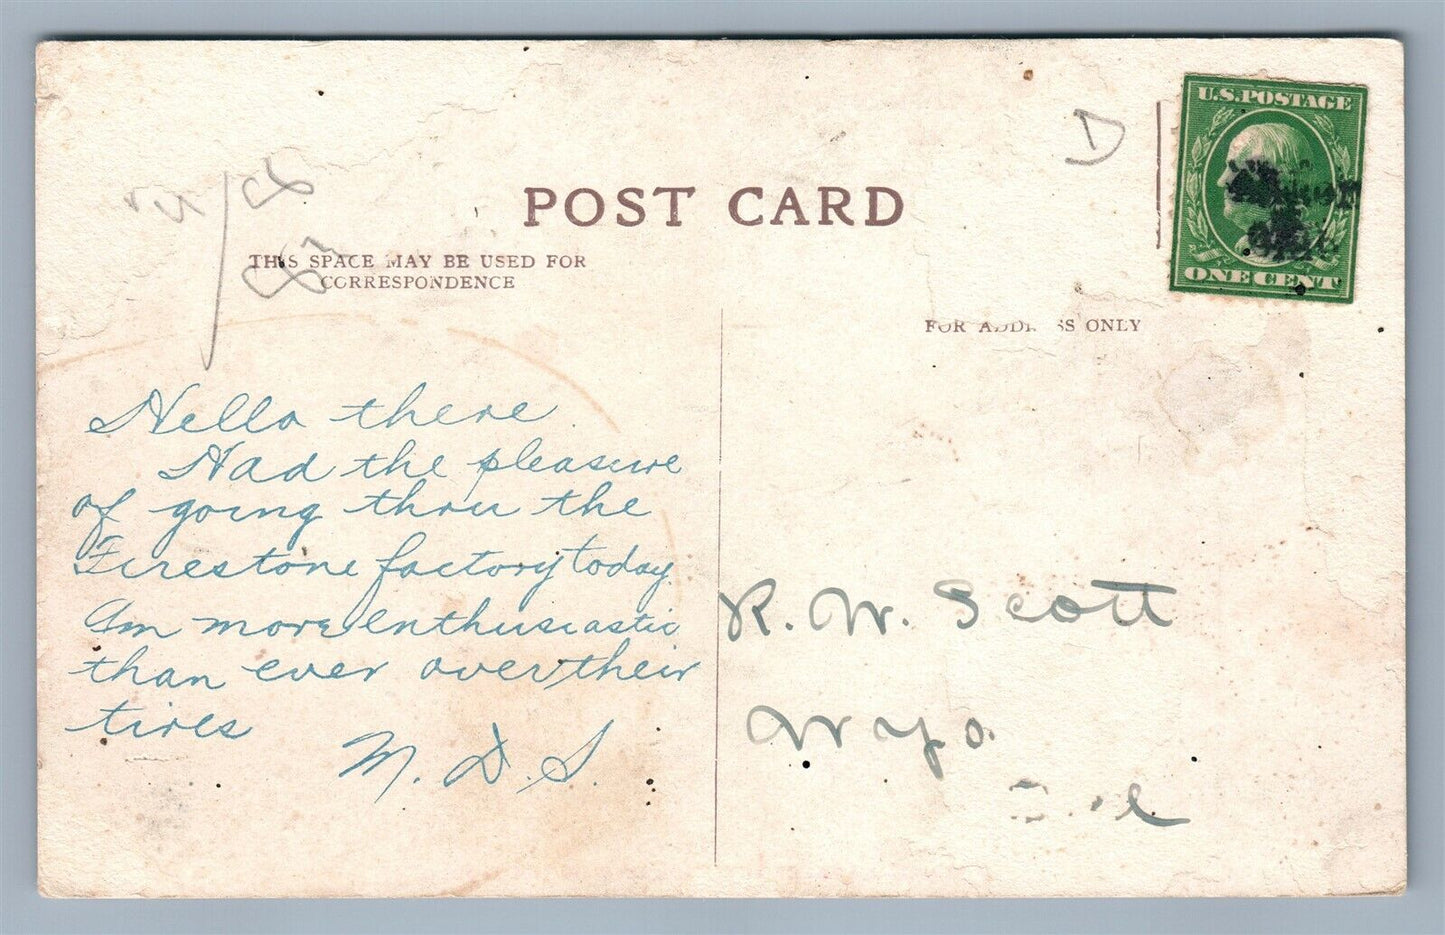 U.S. POSTAGE
D
POST CARD
THIS SPACE MAY BE USED FOR
CORRESPONDENCE
ONE CENT
FOR ADDRESS ONLY
Hello there
Had the pleasure
of going thru the
Firestone factory today.
Am more enthusiastic
than ever over their
tires
M. D. S.
R. W. Scott
Wyo.